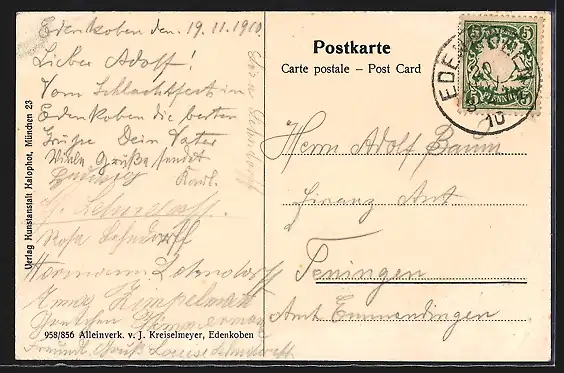 Edenkoben den. 19.11.1910.
Lieber Adolf!
Vom Schlachtfest in
Edenkoben die besten
Grüße Dein Vater
Viele Grüße sendet
Karl.
Rosa Lehndorff
Hermann Lehndorff
Anna
Louise Lehndorff
Verlag Kunstanstalt Kalophot, München 23
958/856 Alleinverk. v. J. Kreiselmeyer, Edenkoben
Postkarte
Carte postale – Post Card
EDENKOBEN
10
5 5
PFENNIG
Herrn Adolf Baum
Finanz Amt
Teningen
Amt Emmendingen